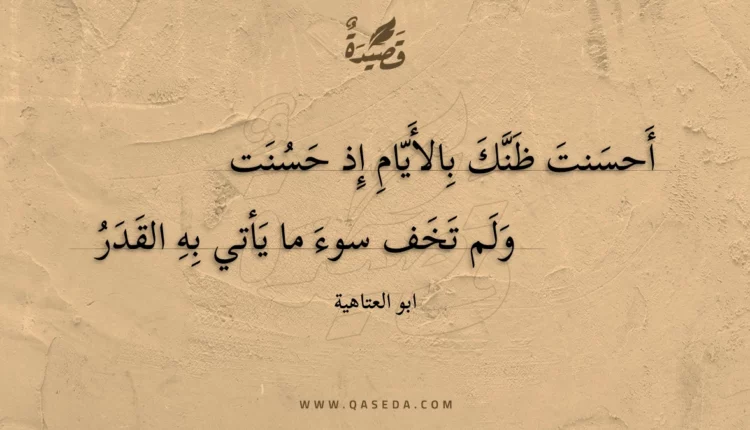 قَصِيدَةٌ
أَحسَنتَ ظَنَّكَ بِالأَيّامِ إِذ حَسُنَت
وَلَم تَخَف سوءَ ما يَأتي بِهِ القَدَرُ
ابو العتاهية
WWW.QASEDA.COM